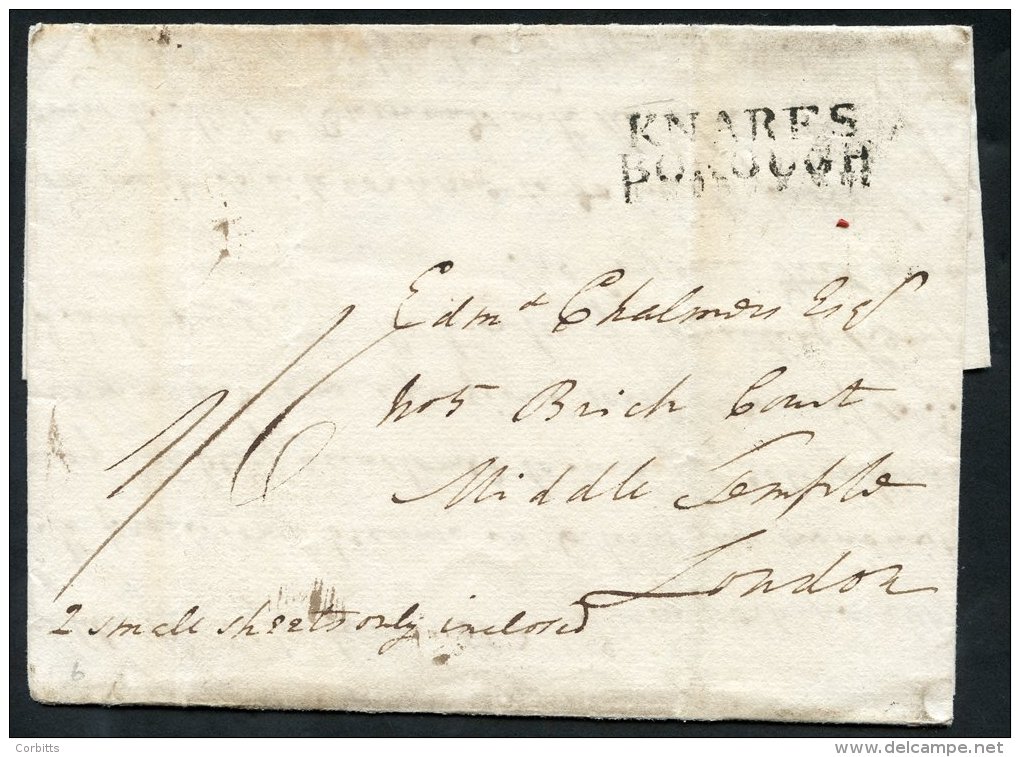 KNARES
BOROUGH
Edmd Chalmers Esqr
No 5 Brick Court
Middle Temple
London
1/6
2 small sheets only inclosed
6
Corbitts
www.delcampe.net